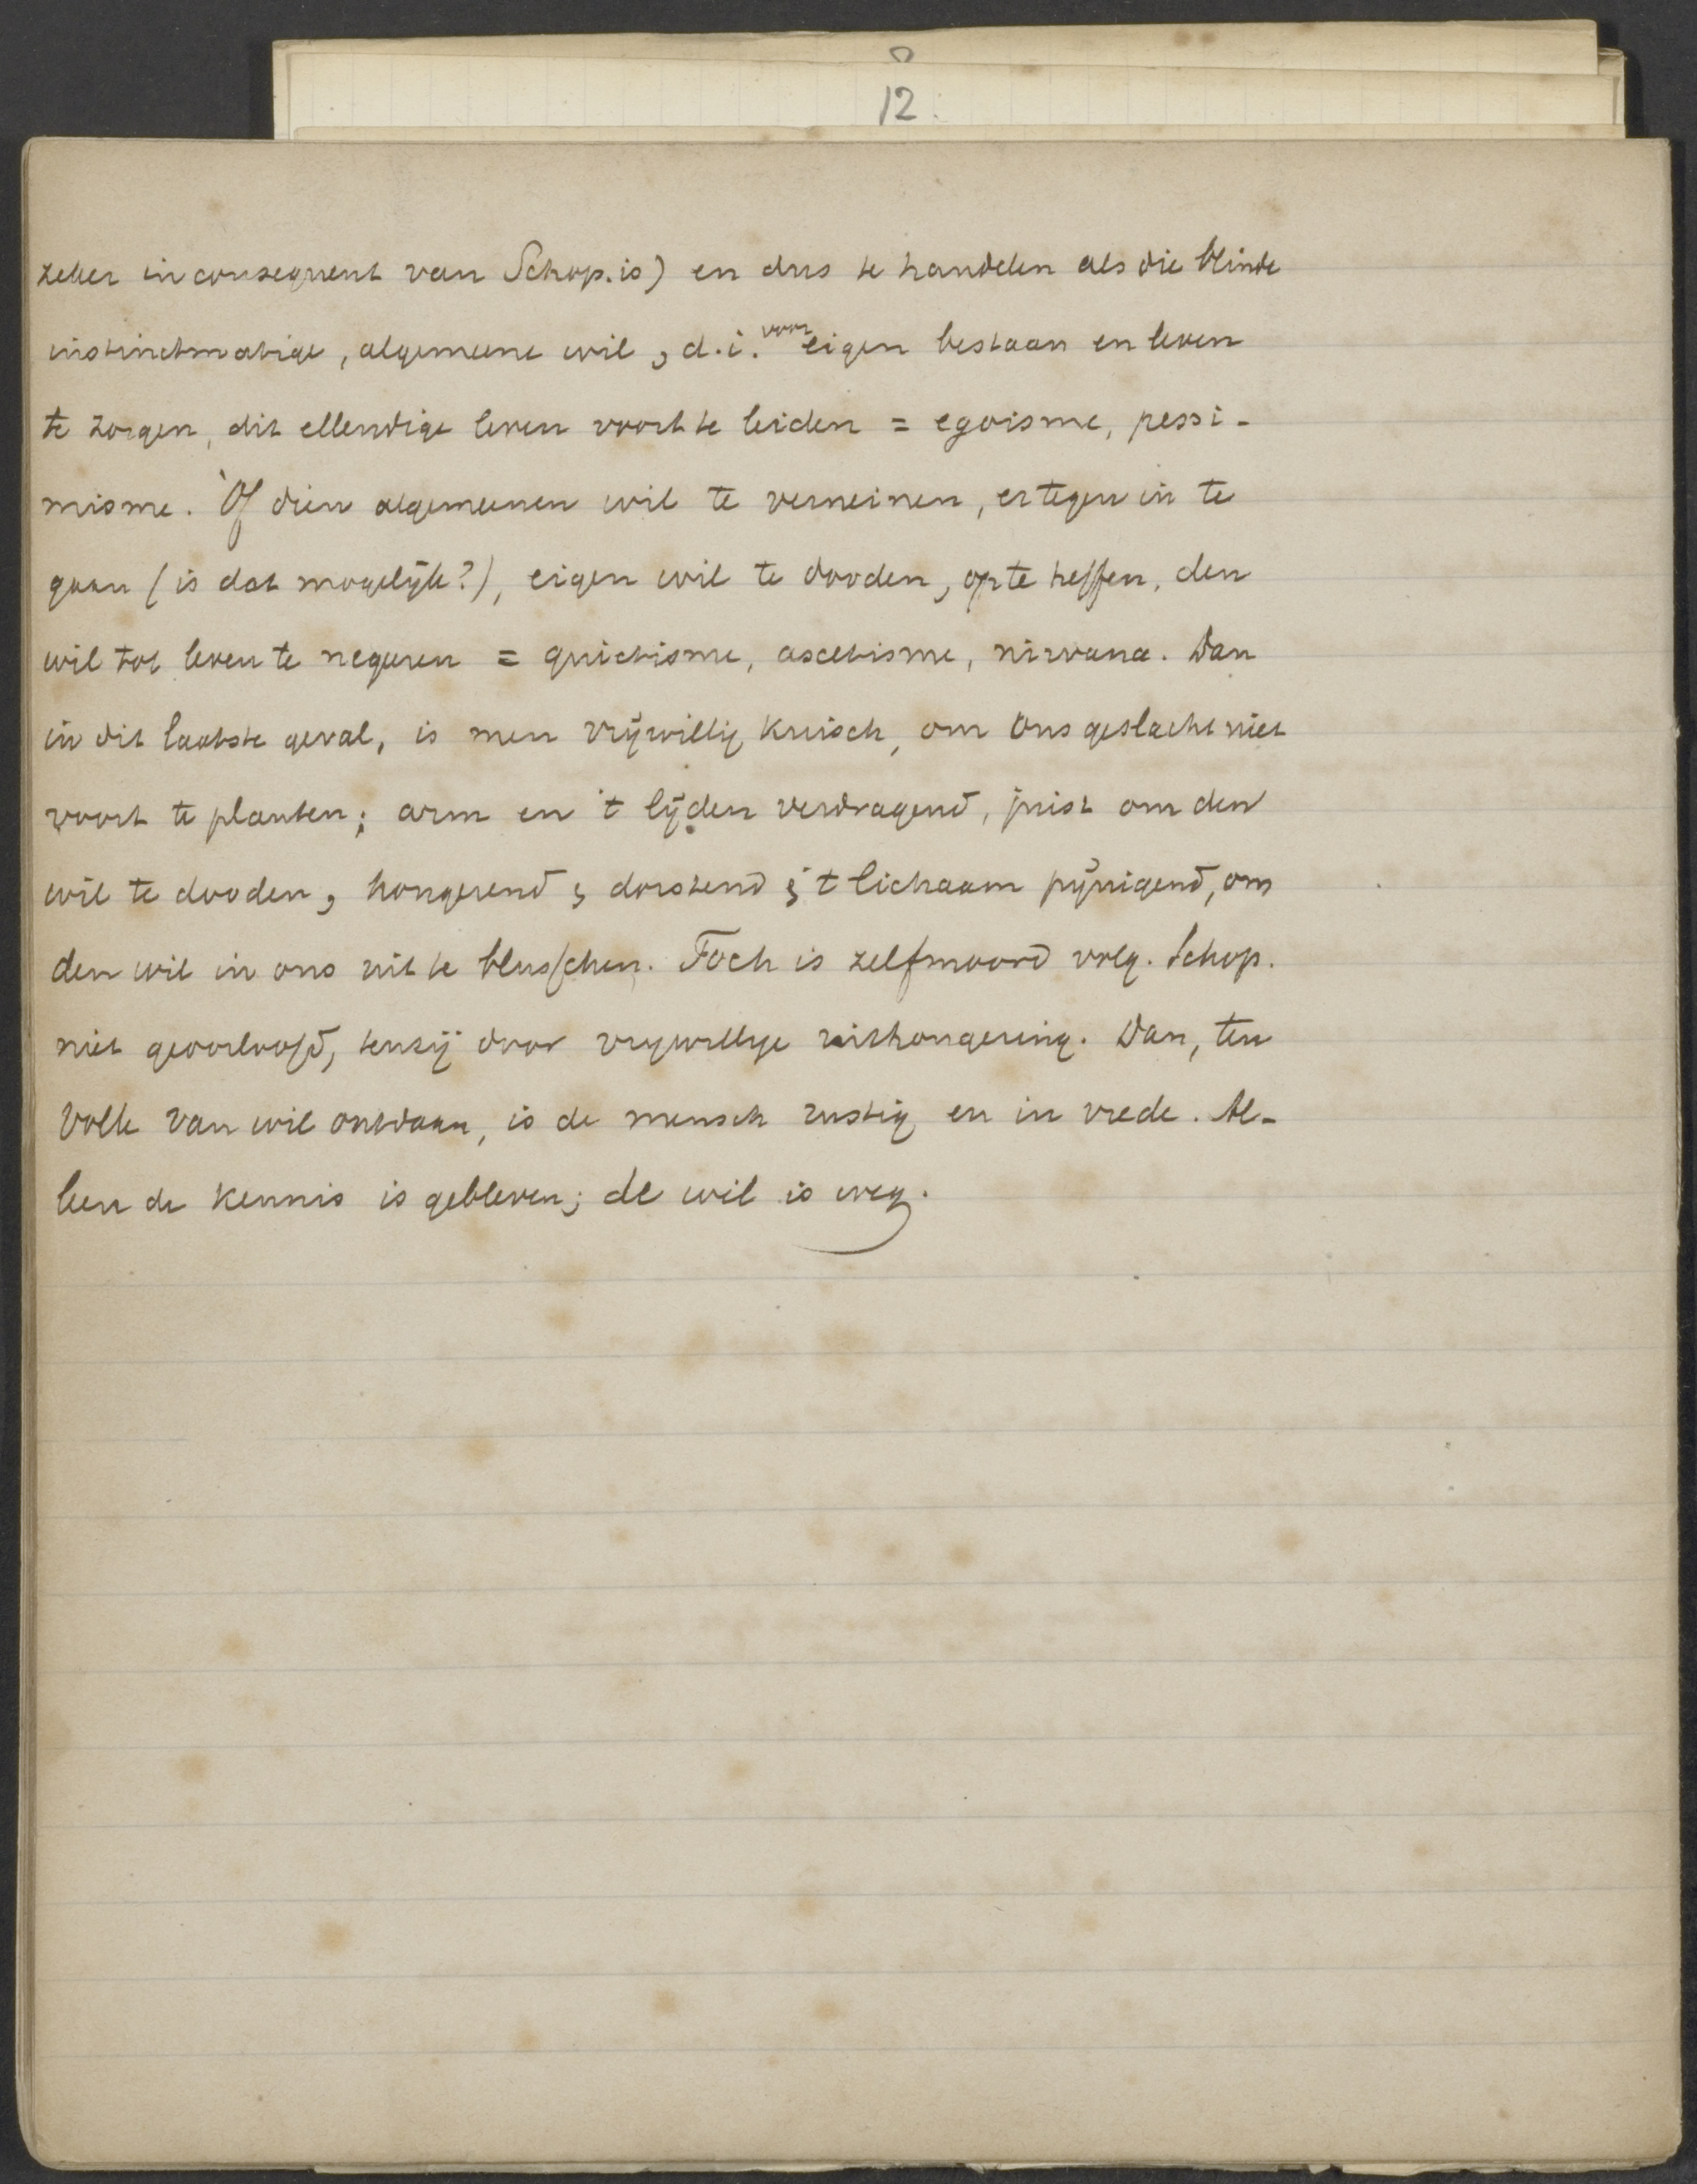 12.
zeker inconsequent van Schop. is) en dus te handelen als die blinde
instinctmatige, algemeene wil, d.i. voor eigen bestaan en leven
te zorgen, dit ellendige leven voort te leiden = egoisme, pessi-
misme. Òf dien algemeenen wil te verneinen, er tegen in te
gaan (is dat mogelijk?), eigen wil te dooden, op te heffen, den
wil tot leven te negeren = quietisme, ascetisme, nirvana. Dan
in dit laatste geval, is men vrijwillig kuisch, om ons geslacht niet
voort te planten; arm en 't lijden verdragend, juist om den
wil te dooden, hongerend, dorstend; 't lichaam pijnigend, om
den wil in ons uit te blusschen. Toch is zelfmoord volg. Schop.
niet geoorloofd, tenzij door vrijwillige uithongering. Dan, ten
volle van wil ontdaan, is de mensch rustig en in vrede. Al-
leen de kennis is gebleven; de wil is weg.